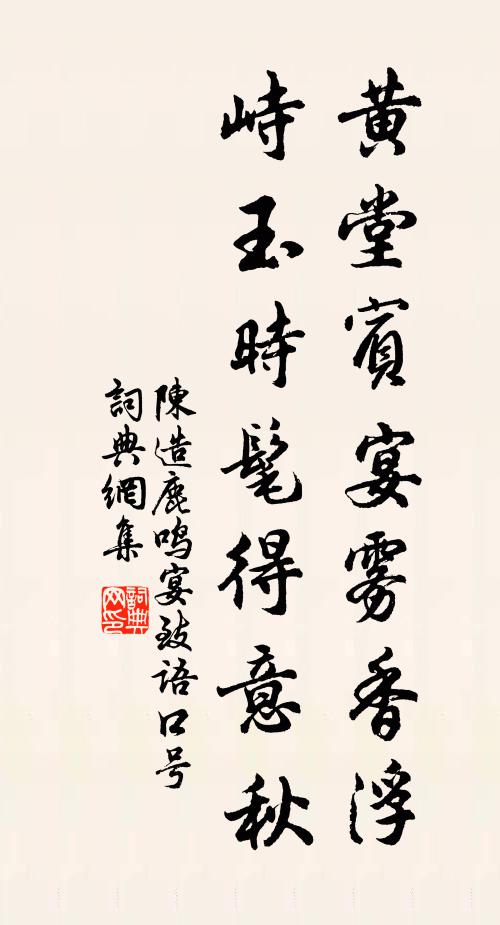 黄堂賓宴雾香浮
峙玉時髦得意秋
陳造鹿鸣宴致语口号
詞典網集
詞典网印